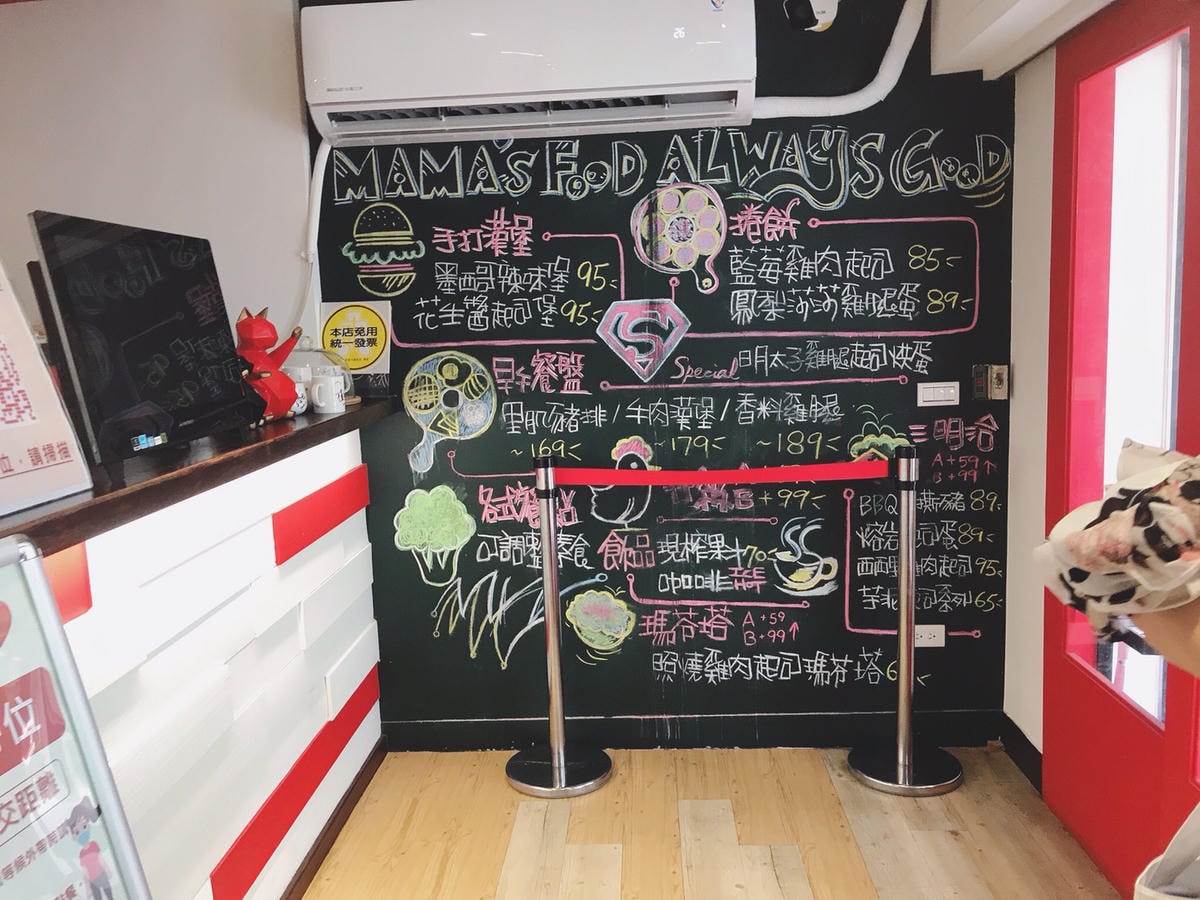 26
MAMA'S FOOD ALWAYS GOOD
手打漢堡
墨西哥辣味堡 95
花生醬起司堡 95
捲餅
藍莓雞肉起司 85
鳳梨莎莎雞腿蛋 89
本店免用
統一發票
S
Special 明太子雞腿起司烘蛋
早午餐盤
里肌豬排/牛肉漢堡/香料雞腿
~169 ~179 ~189
三明治
A+59
B+99
+99
BBQ
89
89
95
65
可調整素食
飲品 現榨果汁 70
咖啡
瑪芬塔 A+59
B+99
照燒雞肉起司瑪芬塔
位,請掃描
位
交距離